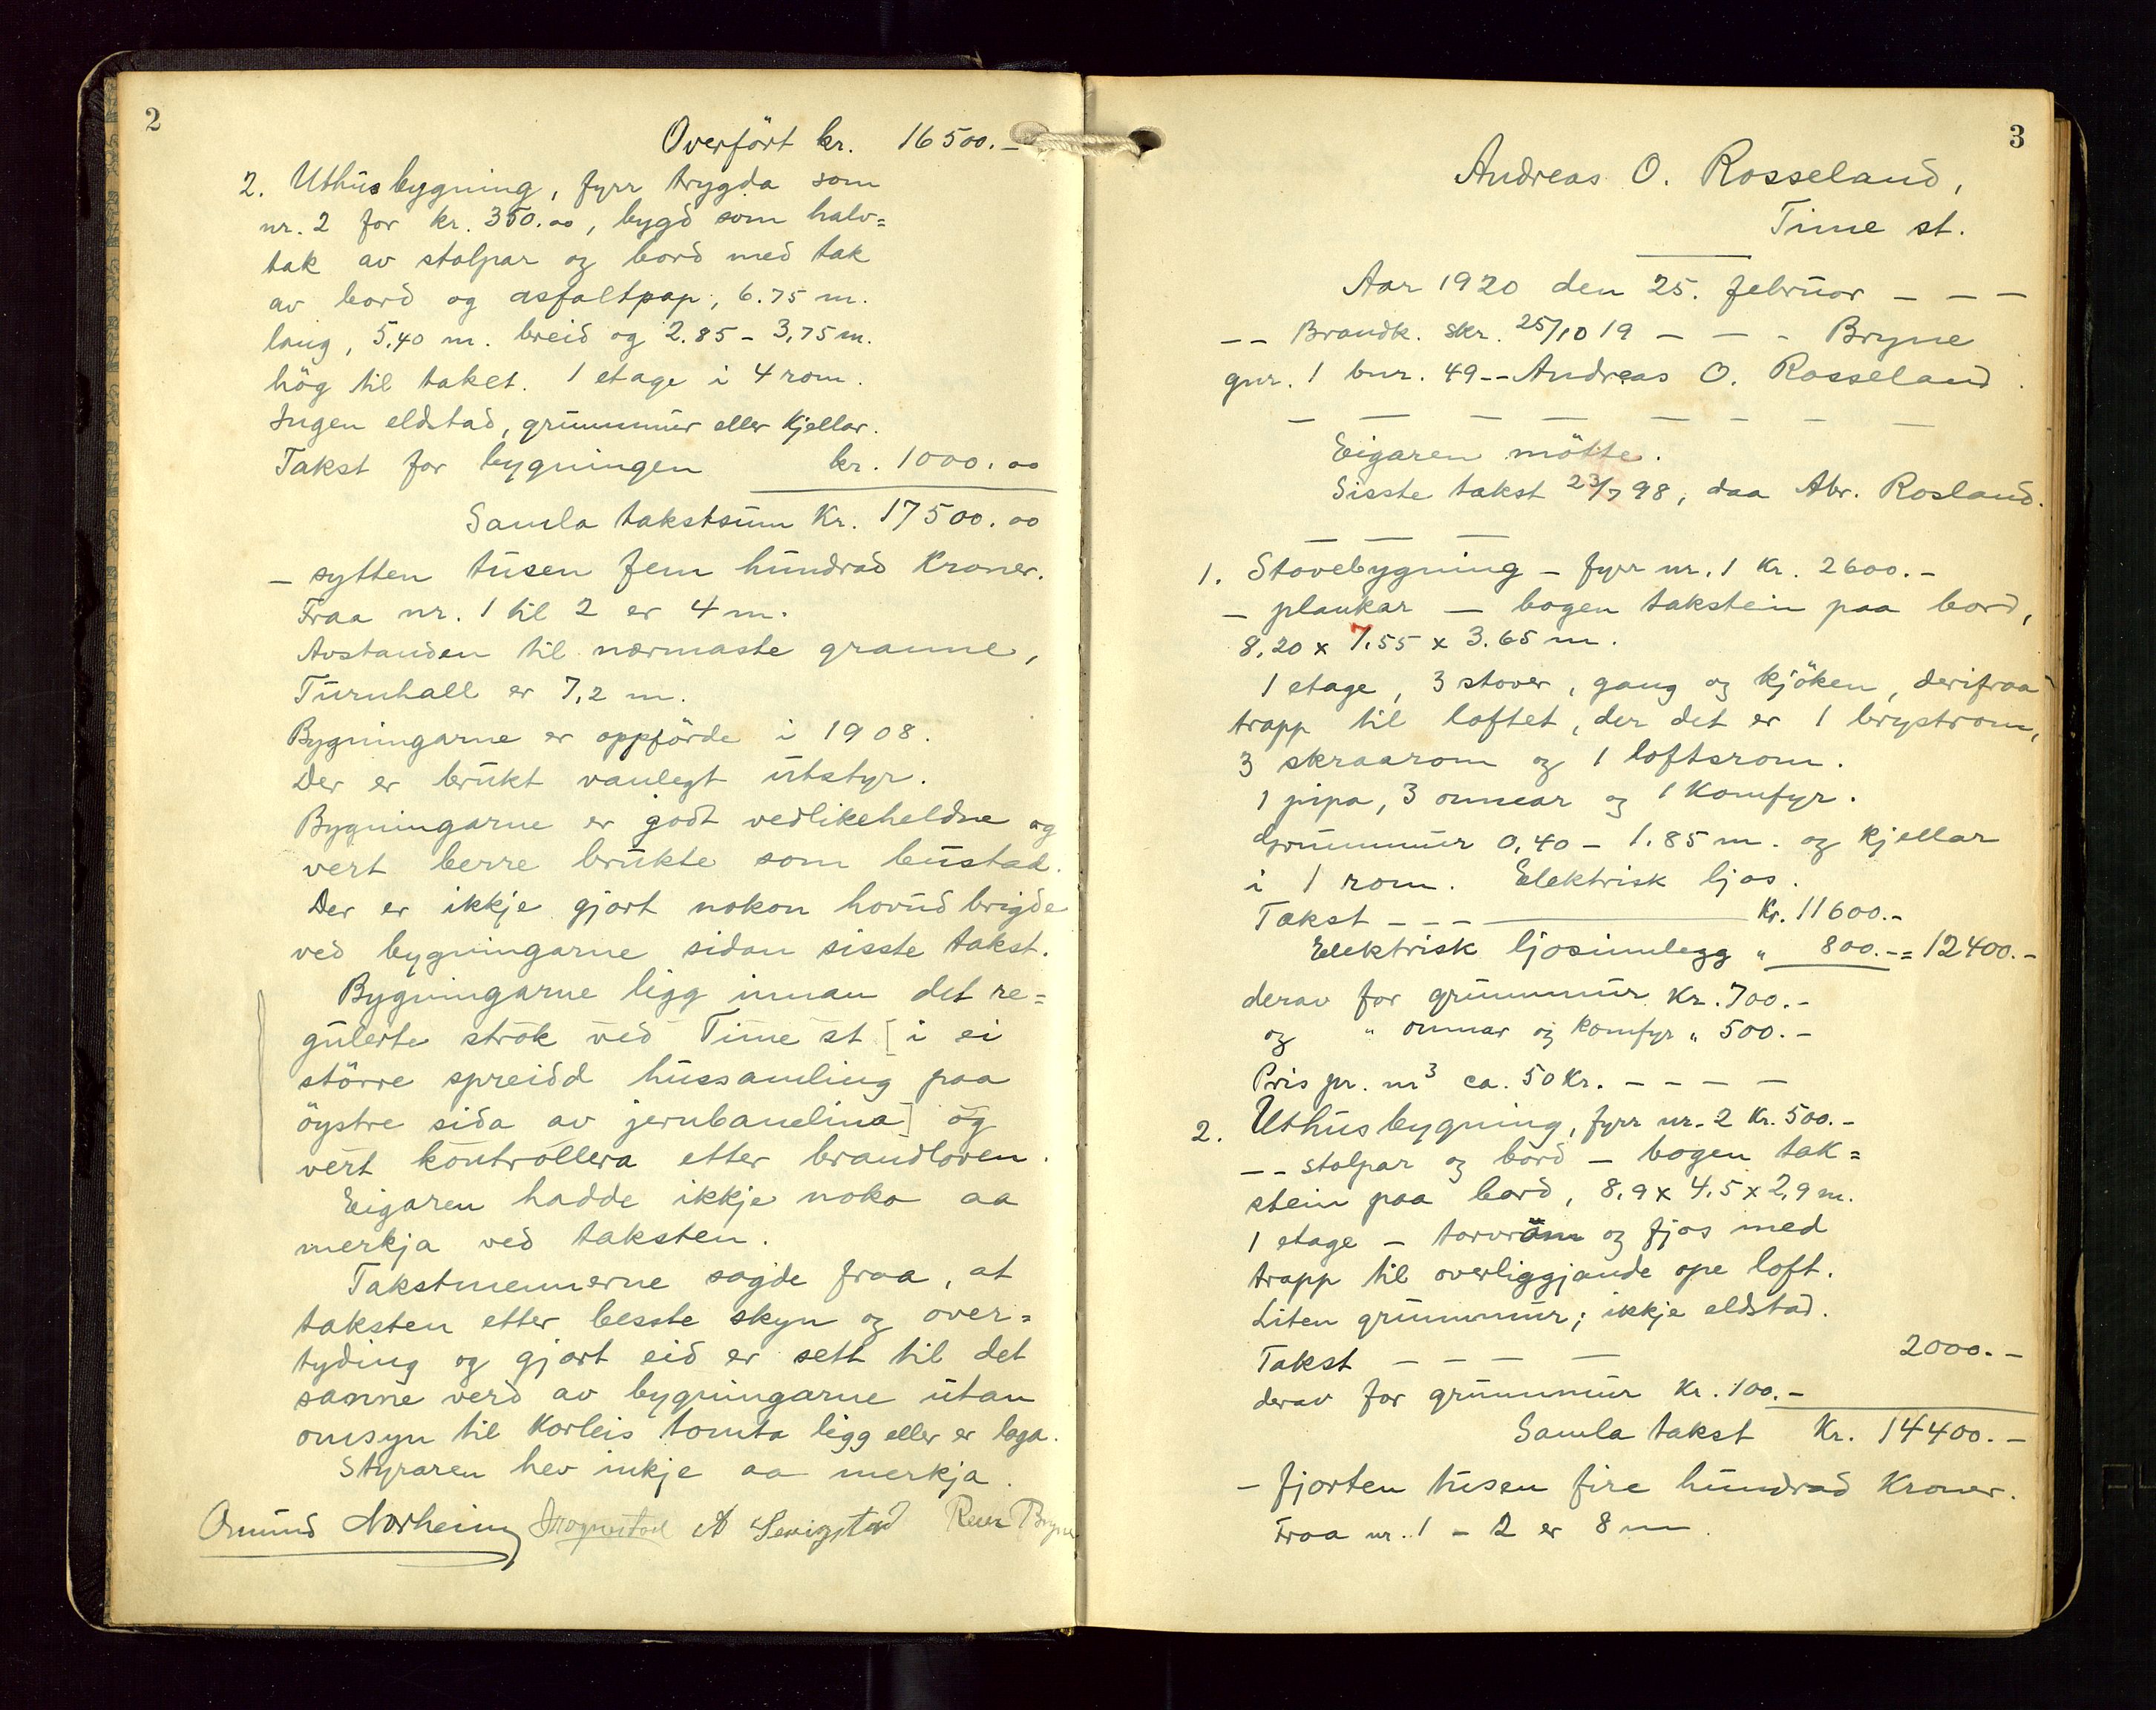 2
Overfört kr. 16500.-
2. Uthusbygning, fyrr trygda som
nr. 2 for kr. 350.00, bygd som halv=
tak av stolpar og bord med tak
av bord og asfaltpap, 6.75 m.
lang, 5,40 m. breid og 2.85 - 3,75 m.
hög til taket. 1 etage i 4 rom.
Ingen eldstad, grunnmur eller kjellar.
Takst for bygningen kr. 1000.00
Samla takstsum Kr. 17500.00
- sytten tusen fem hundrad Kroner.
Fraa nr. 1 til 2 er 4 m.
Avstanden til nærmaste granne,
Turnhall er 7,2 m.
Bygningarne er oppförde i 1908.
Der er brukt vanlegt utstyr.
Bygningarne er godt vedlikeheldne og
vert berre brukte som bustad.
Der er ikkje gjort nokon hovudbrigde
ved bygningarne sidan sisste takst.
Bygningarne ligg innan det re=
gulerte strok ved Time st [i ei
större spreidd hussamling paa
öystre sida av jernbanelina] og
vert kontrollera etter brandloven.
Eigaren hadde ikkje noko aa
merkja ved taksten.
Takstmennerne sagde fraa, at
taksten etter besste skyn og over=
tyding og gjort eid er sett til det
sanne verd av bygningarne utan
omsyn til korleis tomta ligg eller er laga.
Styraren hev inkje aa merkja.
Omund Norheim A Serigstad Reier Bryne
3
Andreas O. Rosseland,
Time st.
Aar 1920 den 25. februar - - -
-- Brandk. skr. 25/10 19 - - - Bryne
gnr. 1 bnr. 49 -- Andreas O. Rosseland.
- - - - - - - -
Eigaren mötte.
Sisste takst 23/7 98, daa Abr. Rosland.
- - -
1. Stovebygning - fyrr nr. 1 Kr. 2600.-
- plankar - bogen takstein paa bord,
8,20 x 7,55 x 3.65 m.
1 etage, 3 stover, gang og kjöken, derifraa
trapp til loftet, der det er 1 brystrom,
3 skraarom og 1 loftsrom.
1 pipa, 3 omnar og 1 Komfyr.
Grunnmur 0,40 - 1.85 m. og kjellar
i 1 rom. Elektrisk ljos.
Takst - - - Kr. 11600.-
Elektrisk ljosinnlegg " 800.- = 12400.-
derav for grunnmur Kr. 700.-
og " omnar og komfyr " 500.-
Pris pr. m³ ca. 50 Kr. - - - -
2. Uthusbygning, fyrr nr. 2 Kr. 500.-
-- stolpar og bord - bogen tak=
stein paa bord, 8,9 x 4,5 x 2,9 m.
1 etage - torvrom og fjos med
trapp til overliggjande ope loft.
Liten grunnmur; ikkje eldstad.
Takst - - - - 2000.-
derav for grunnmur Kr. 100.-
Samla takst Kr. 14400.-
- fjorten tusen fire hundrad Kroner.
Fraa nr. 1 - 2 er 8 m.